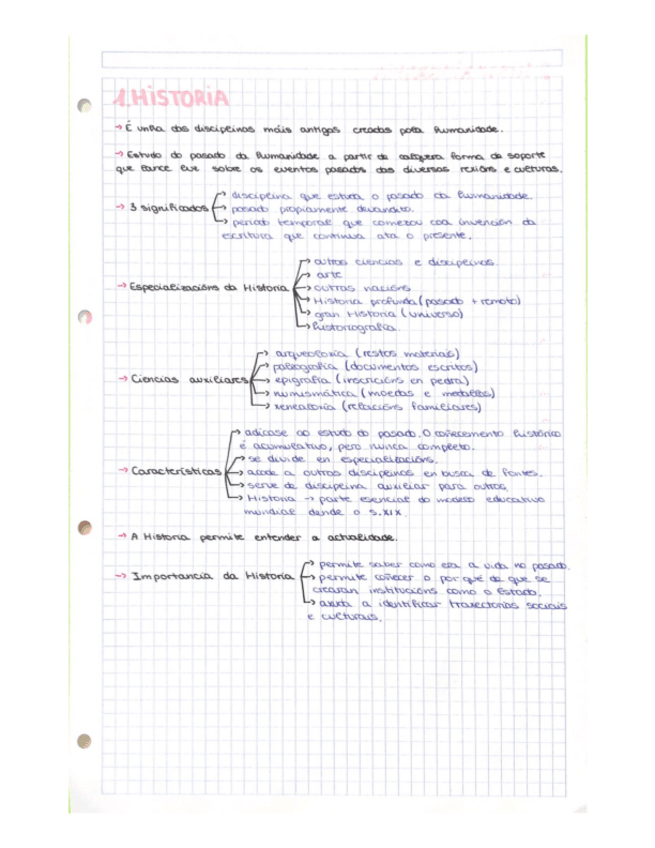 1. HISTORIA
→ É unha das disciplinas máis antigas creadas pola humanidade.
→ Estudo do pasado da humanidade a partir de calquera forma de soporte
que lance luz sobre os eventos pasados das diversas rexións e culturas.
→ 3 significados
→ disciplina que estuda o pasado da humanidade.
→ pasado propiamente devandito.
→ período temporal que comezou coa invención da
escritura que continua ata o presente.
→ Especializacións da Historia
→ outras ciencias e disciplinas.
→ arte
→ outras nacións
→ Historia profunda (pasado + remoto)
→ gran Historia (universo)
→ historiografía.
→ Ciencias auxiliares
→ arqueoloxía (restos materiais)
→ paleografía (documentos escritos)
→ epigrafía (inscricións en pedra)
→ numismática (moedas e medallas)
→ xenealoxía (relacións familiares)
→ Características
→ adícase ao estudo do pasado. O coñecemento histórico
é acumulativo, pero nunca completo.
→ se divide en especializacións.
→ acode a outras disciplinas en busca de fontes.
→ serve de disciplina auxiliar para outras.
→ Historia → parte esencial do modelo educativo
mundial dende o S.XIX.
→ A Historia permite entender a actualidade.
→ Importancia da Historia
→ permite saber como era a vida no pasado.
→ permite coñecer o por qué de que se
crearan institucións como o Estado.
→ axuda a identificar traxectorias sociais
e culturais.